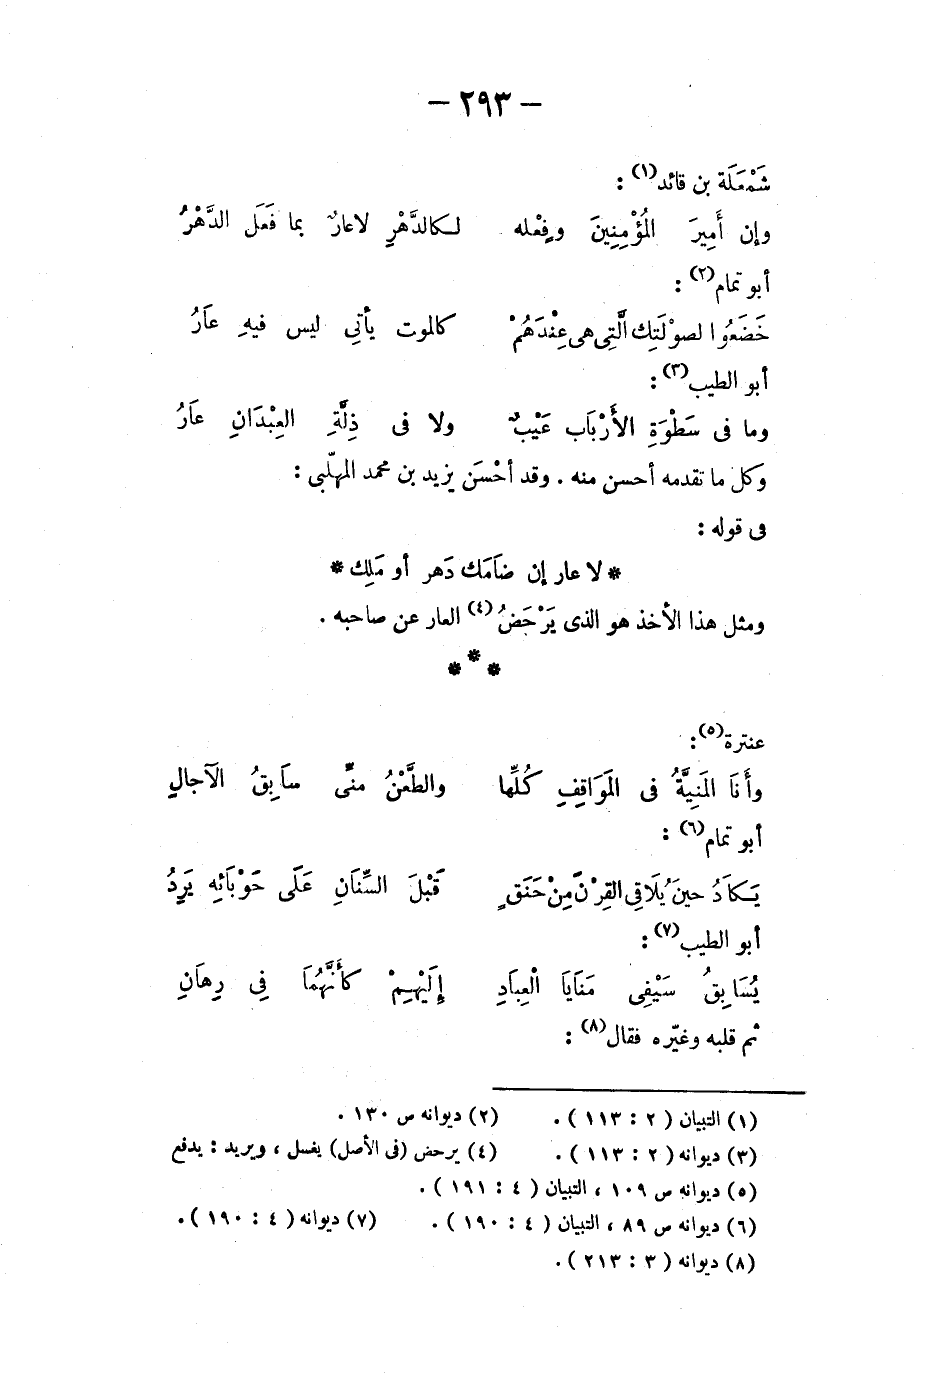 — ٢٩٣ —
شَمْعَلَة بن قائد(١) :
وإن أَمِيرَ المُؤْمِنِينَ وفِعْله لكالدَّهْرِ لاعارٌ بما فَعَل الدَّهْرُ
أبو تمام(٢) :
خَضَعُوا لصوْلَتِك الَّتِى هى عِنْدَهُمْ كالموت يأتى ليس فيهِ عَارُ
أبو الطيب(٣) :
وما فى سَطْوَةِ الأَرْبَاب عَيْبٌ ولا فى ذِلَّةِ العِبْدَانِ عَارُ
وكل ما تقدمه أحسن منه . وقد أحْسَن يزيد بن محمد المهلّبى :
فى قوله :
* لا عار إن ضَامَك دَهر أو مَلِك *
ومثل هذا الأخذ هو الذى يَرْحَضُ(٤) العار عن صاحبه .
* * *
عنترة(٥) :
وأَنَا المَنِيَّةُ فى المَوَاقِفِ كُلِّها والطَّعْنُ منّى سَابِقُ الآجالِ
أبو تمام(٦) :
يَكادُ حينَ يُلَاقِى القِرْنَ مِنْ حَنَقٍ قَبْلَ السِّنَانِ عَلَى حَوْبَائِه يَرِدُ
أبو الطيب(٧) :
يُسَابِقُ سَيْفِى مَنَايَا الْعِبَادِ إِلَيْهِمْ كَأَنَّهُمَا فِى رِهَانِ
ثم قلبه وغيّره فقال(٨) :
(١) التبيان ( ٢ : ١١٣ ) . (٢) ديوانه ص ١٣٠ .
(٣) ديوانه ( ٢ : ١١٣ ) . (٤) يرحض (فى الأصل) يغسل ، ويريد : يدفع
(٥) ديوانه ص ١٠٩ ، التبيان ( ٤ : ١٩١ ) .
(٦) ديوانه ص ٨٩ ، التبيان ( ٤ : ١٩٠ ) . (٧) ديوانه ( ٤ : ١٩٠ ) .
(٨) ديوانه ( ٣ : ٢١٣ ) .